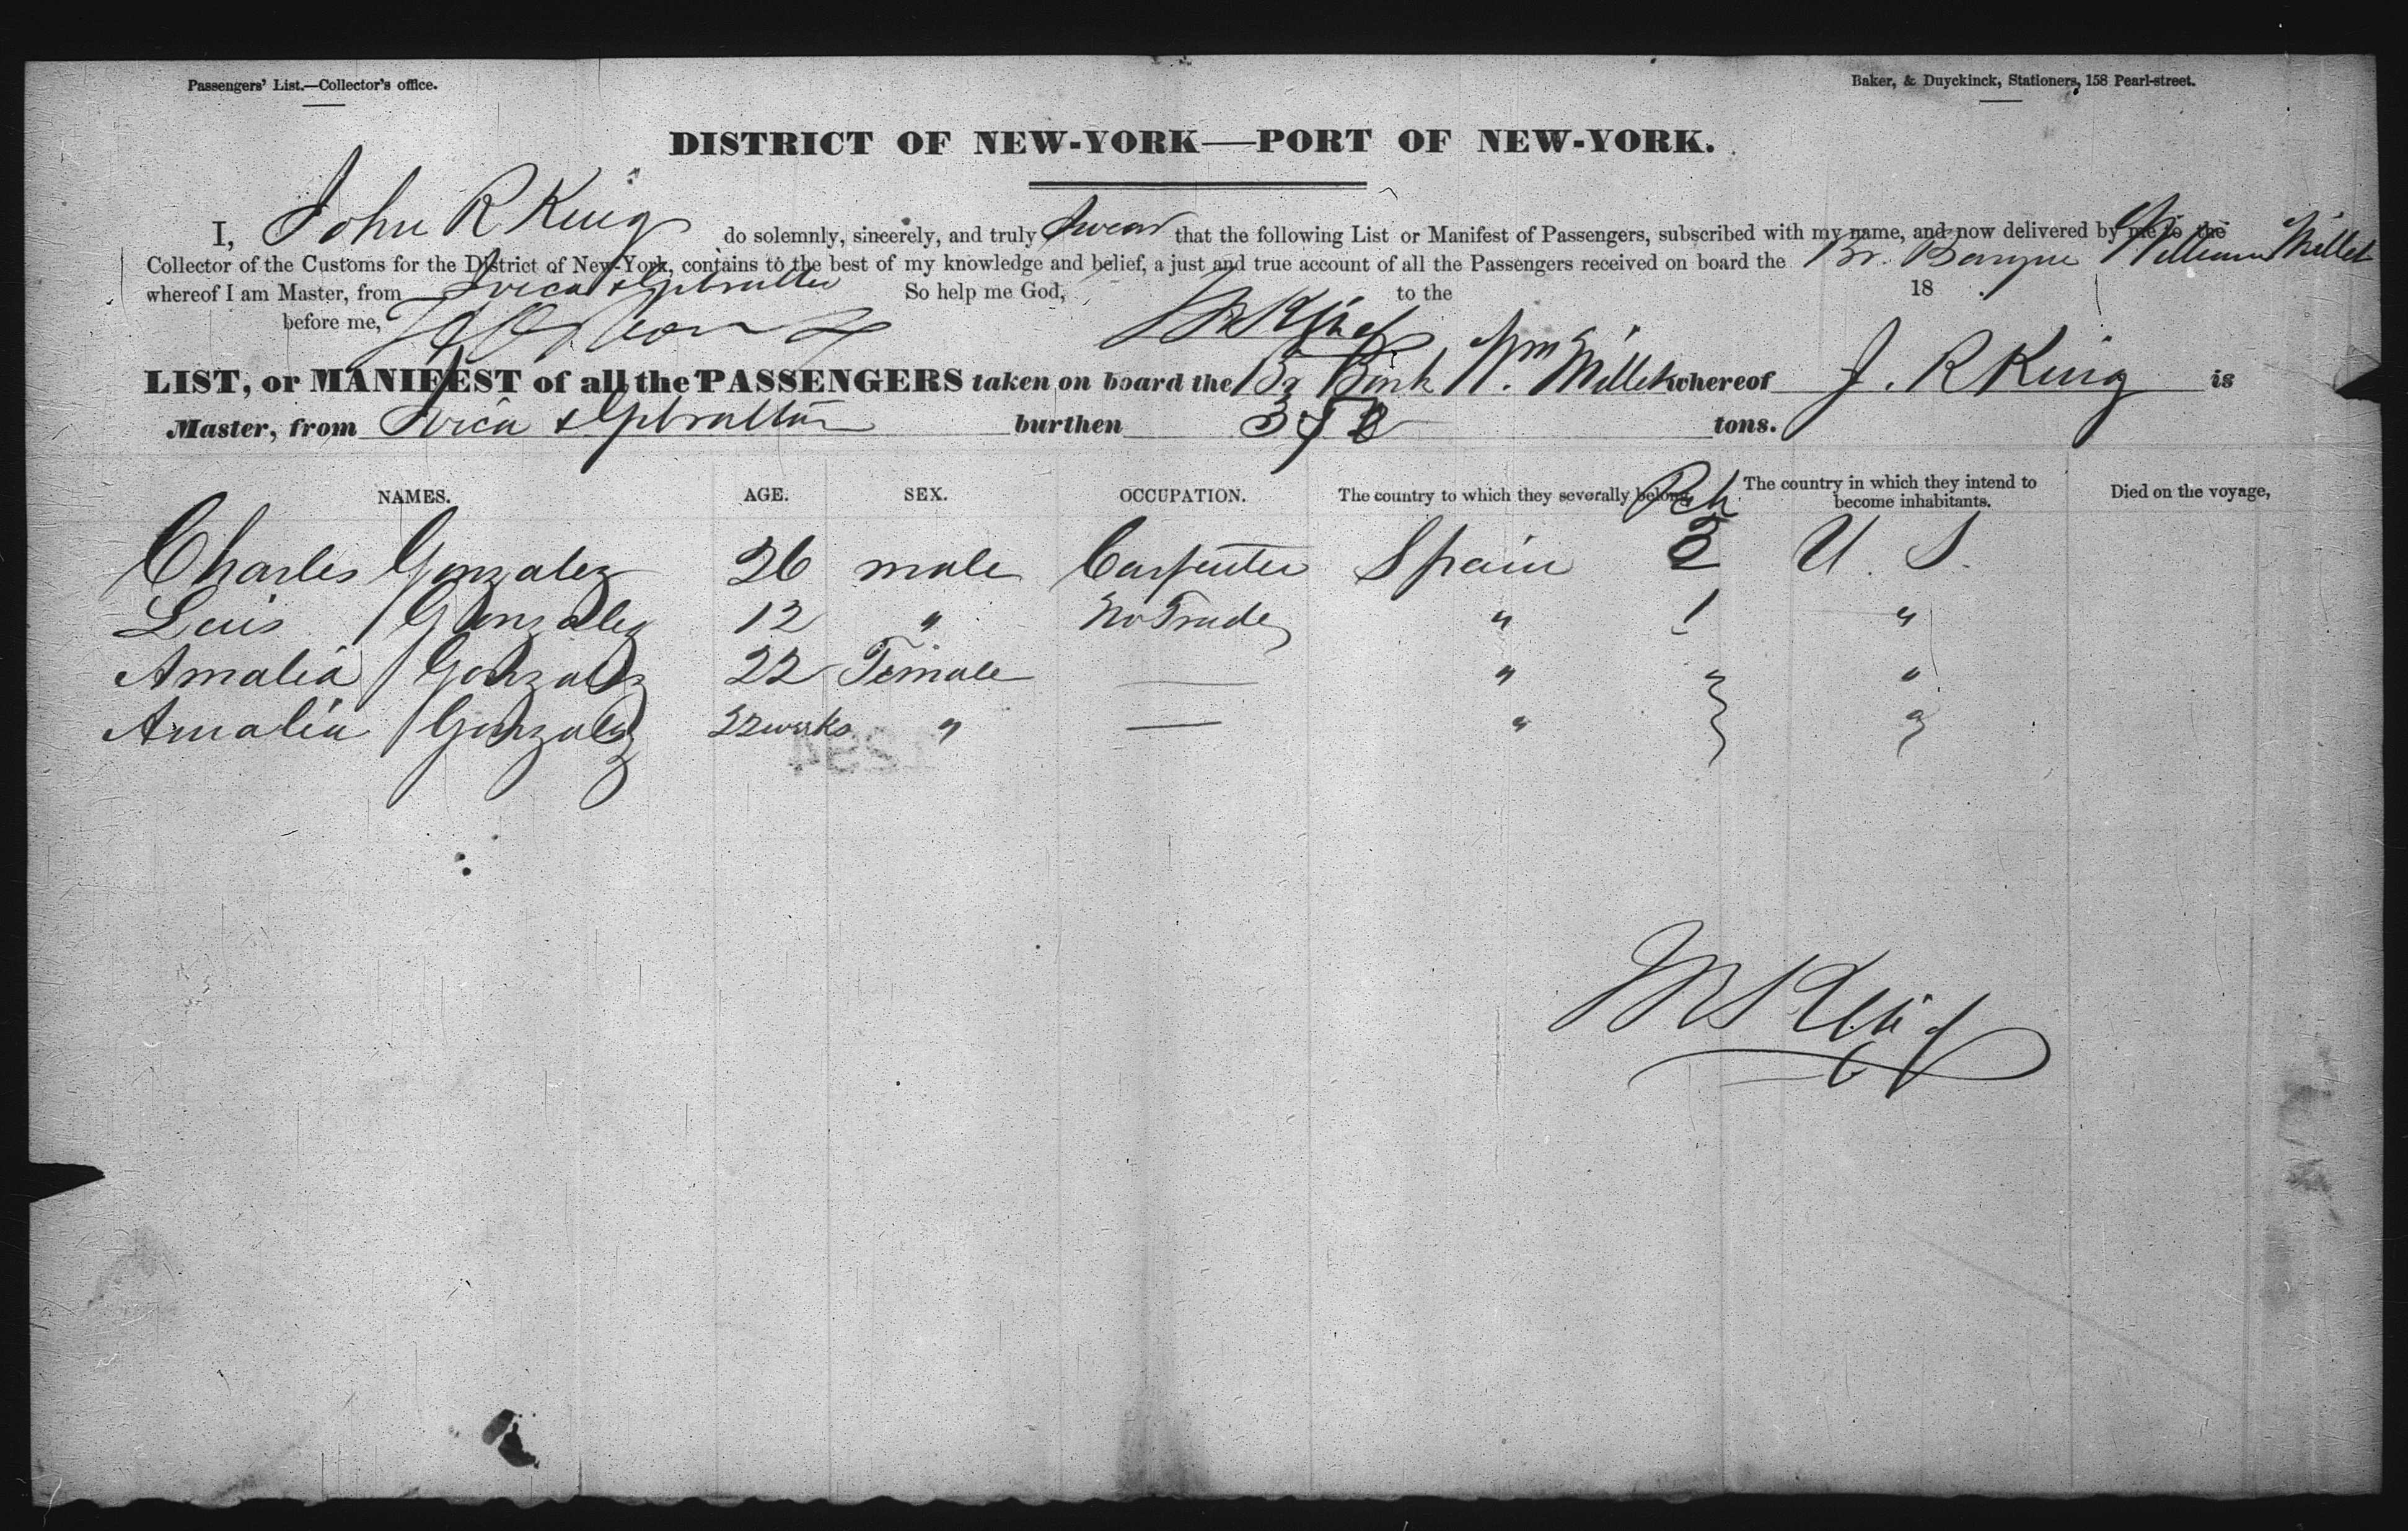 Passengers' List.—Collector's office.
Baker, & Duyckinck, Stationers, 158 Pearl-street.
DISTRICT OF NEW-YORK—PORT OF NEW-YORK.
I, John R King do solemnly, sincerely, and truly Swear that the following List or Manifest of Passengers, subscribed with my name, and now delivered by me to the
Collector of the Customs for the District of New-York, contains to the best of my knowledge and belief, a just and true account of all the Passengers received on board the Br. Barque William Millet
whereof I am Master, from Ivica & Gibralter So help me God, to the 18
before me, J R King
LIST, or MANIFEST of all the PASSENGERS taken on board the Br Bark Wm Millet whereof J. R King is
Master, from Ivica & Gibraltar burthen tons.
NAMES. AGE. SEX. OCCUPATION. The country to which they severally belong. The country in which they intend to become inhabitants. Died on the voyage,
Charles Gonzalez 26 male Carpenter Spain 2 U. S.
Luis Gonzalez 12 " No Trade " 1 "
Amalia Gonzalez 22 Female — " " "
Amalia Gonzalez 22 weeks " — " " "
1294
J R King